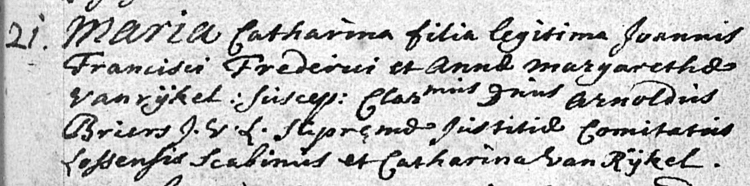 21. Maria Catharina filia legitima Joannis
Francisci Frederici et Annæ Margarethæ
Vanrijkel: suscep: Clarmus Dnus Arnoldus
Briers J. V. L. Supremæ Justitiæ Comitatus
Lossensis Scabinus et Catharina Van Rijkel.